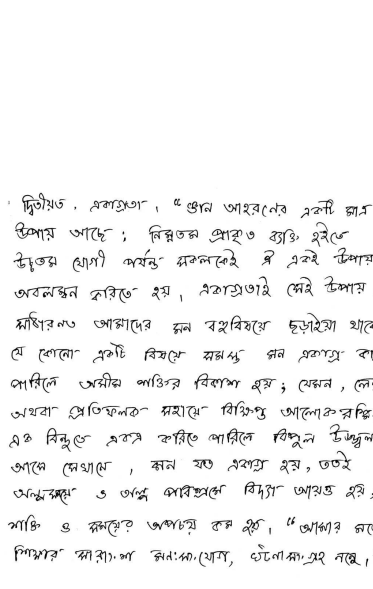 দ্বিতীয়ত, একাগ্রতা, "জ্ঞান আহরণের একটি মাত্র
উপায় আছে; নিম্নতম প্রাকৃত ব্যক্তি হইতে
উচ্চতম যোগী পর্যন্ত সকলকেই ঐ একই উপায়
অবলম্বন করিতে হয়, একাগ্রতাই সেই উপায়
সাধারণত আমাদের মন বহুবিষয়ে ছড়াইয়া থাকে
যে কোনো একটি বিষয়ে সমস্ত মন একাগ্র
পারিলে অসীম শক্তির বিকাশ হয়; যেমন,
অথবা প্রতিফলক সহায়ে বিক্ষিপ্ত আলোক রশ্মি
এক বিন্দুতে একত্র করিতে পারিলে বিপুল উজ্জ্বল
আসে সেখানে, মন যত একাগ্র হয়, ততই
অল্পসময়ে ও অল্প পরিশ্রমে বিদ্যা আয়ত্ত হয়,
শক্তি ও সময়ের অপচয় কম হয়, "আমার মতে
শিক্ষার সারাংশ মনঃসংযোগ, ঘটনাসংগ্রহ নহে,